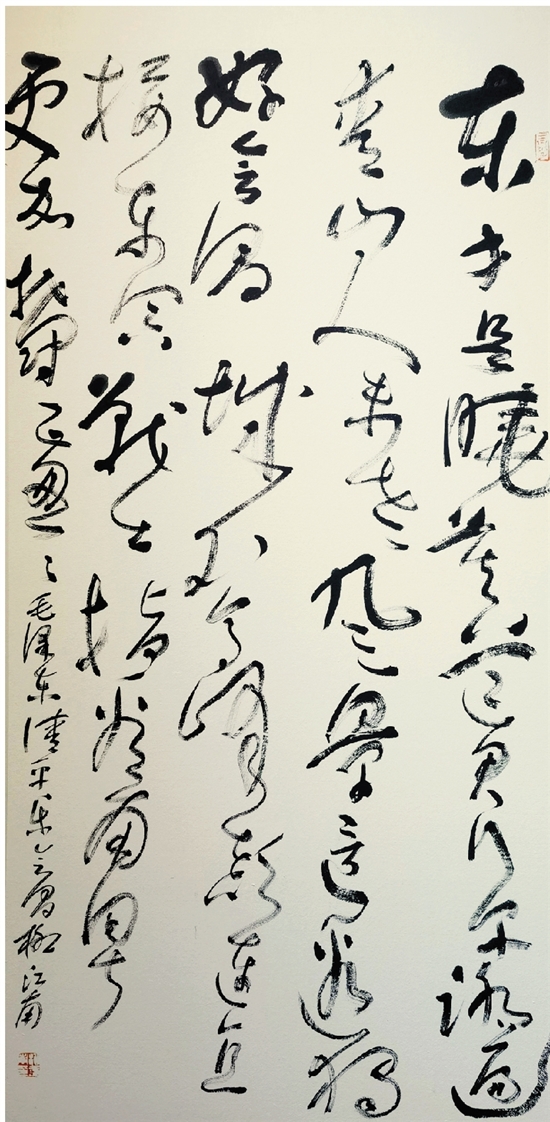 东方欲晓莫道君行早踏遍
青山人未老风景这边独
好会昌城外高峰颠连直
接东溟战士指看南粤
更加郁郁葱葱 毛泽东清平乐会昌 柳江南